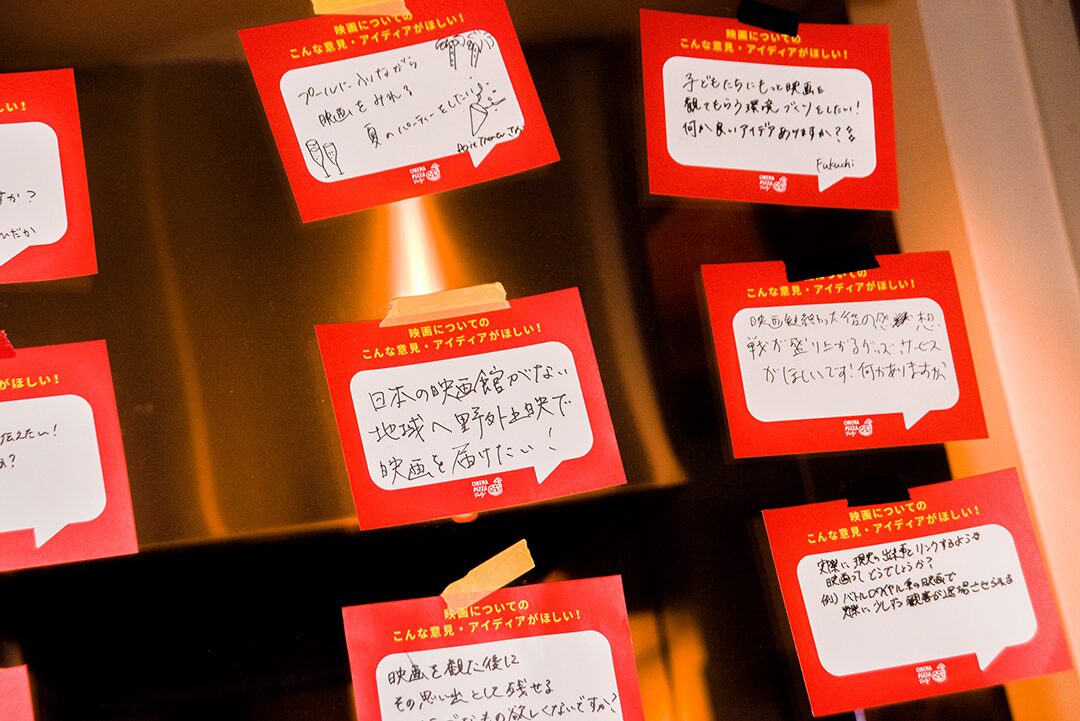 しい！
すか？
ひだか
がほしい！
伝えたい！
か？
映画についての
こんな意見・アイディアがほしい！
プールに入りながら
映画をみれる
夏のパーティーをしたい
CINEMA
PIZZA
Party!
映画についての
こんな意見・アイディアがほしい！
日本の映画館がない
地域へ野外上映で
映画を届けたい！
CINEMA
PIZZA
Party!
映画についての
こんな意見・アイディアがほしい！
映画を観た後に
その思い出として残せる
なもの欲しくないですか？
映画についての
こんな意見・アイディアがほしい！
子どもたちにもっと映画を
観てもらう環境づくりをしたい！
何か良いアイデアありますか？
Fukuchi
CINEMA
PIZZA
Party!
こんな意見・アイディアがほしい！
映画観終わった後の感想
戦が盛り上がるグッズ、サービス
がほしいです！何かありますか？
CINEMA
PIZZA
Party!
映画についての
こんな意見・アイディアがほしい！
実際に現実の出来事とリンクするような
映画ってどうでしょうか？
例）バトルロワイヤル系の映画で
実際に少しずつ観客が退場させられる
CINEMA
PIZZA
Party!